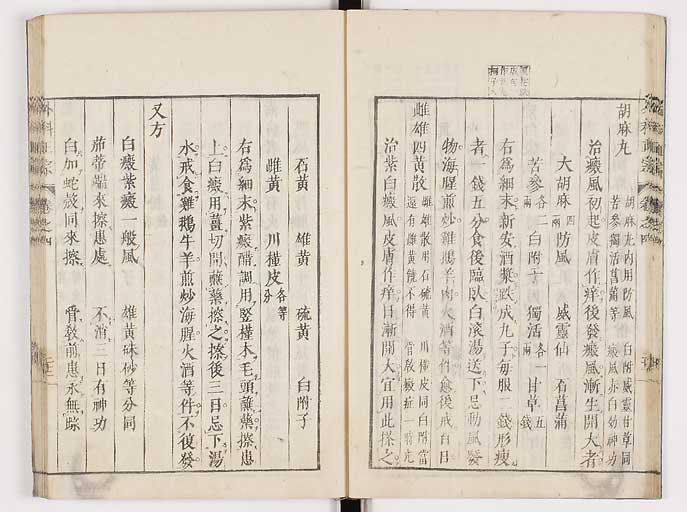 胡麻丸 胡麻丸内用防風 白附威靈甘草同
苦參獨活菖蒲等 癜風赤白効神功
治癜風初起皮膚作痒後發癜風漸生開大者
大胡麻 四兩 防風 威靈仙 石菖蒲
苦參 各二兩 白附子 獨活 各一兩 甘草 五錢
右為細末新安酒漿跌成丸子每服二錢形瘦
者一錢五分食後臨臥白滚湯送下忌動風發
物海腥煎炒雞鵝羊肉火酒等件愈後戒百日
雌雄四黄散 雌雄散用石硫黄 川槿皮同白附當
還有雌黄饒不得 管教癜症一時亢
治紫白癜風皮膚作痒日漸開大宜用此搽之
石黄 雄黄 硫黄 白附子
雌黄 川槿皮 各等分
右為細末紫癜醋調用竪槿木毛頭蘸藥擦患
上白癜用薑切開蘸藥擦之擦後三日忌下湯
水戒食雞鵝牛羊煎炒海腥火酒等件不復發
又方
白癜紫癜一般風 雄黄硃砂等分同
茄蒂蘸來擦患處 不消三日有神功
白加蛇殼同來擦 管教前患永無踪
外科正宗 卷之四